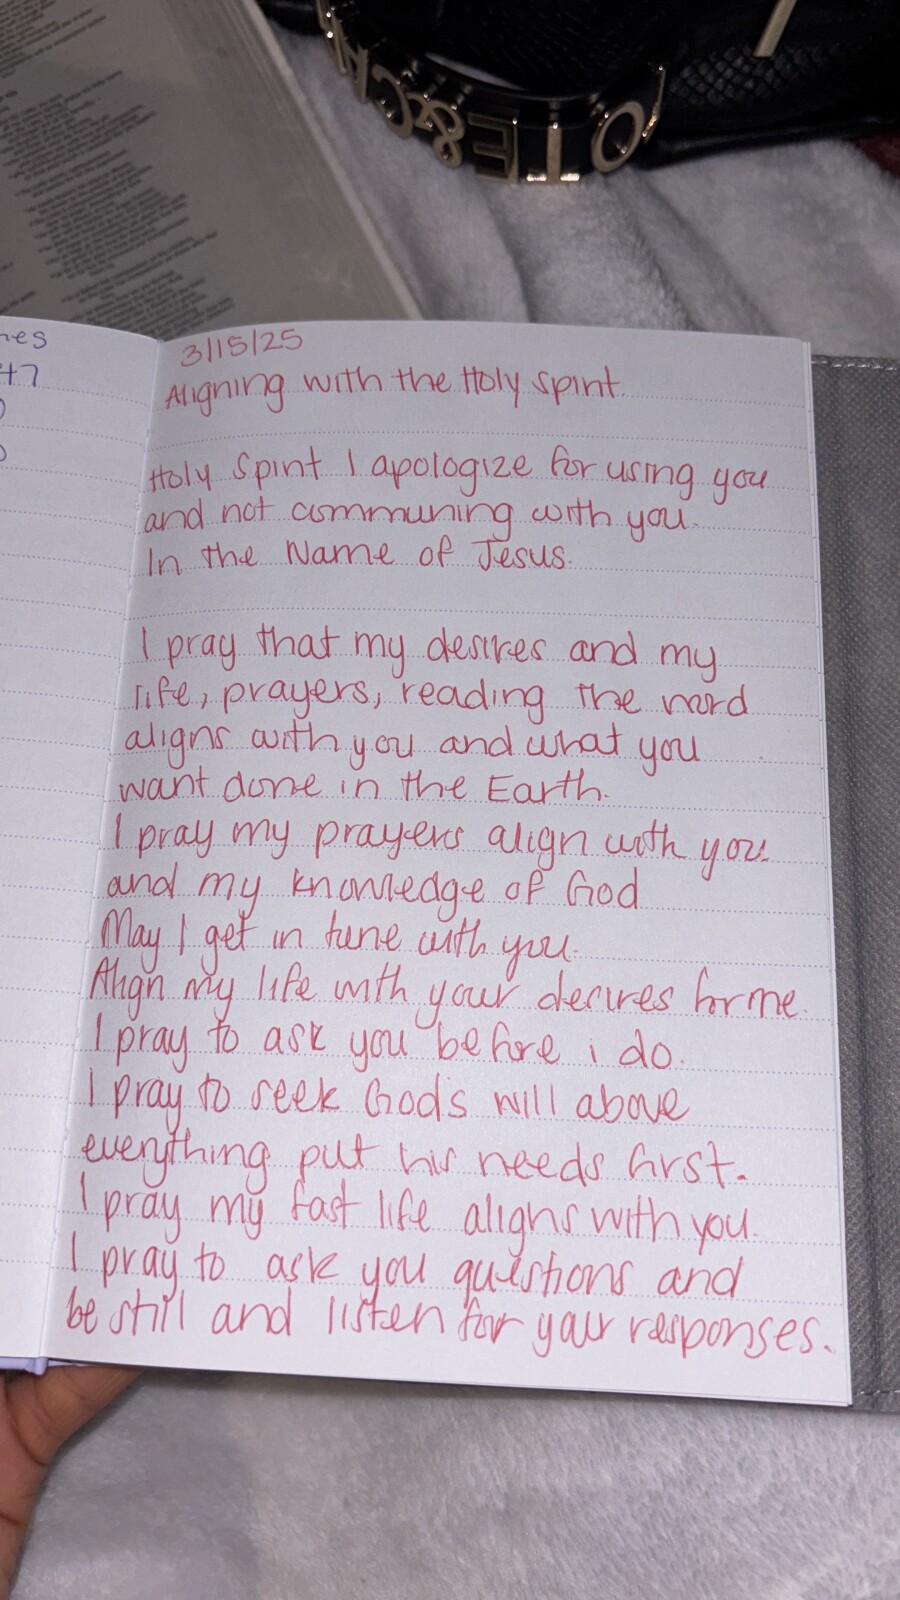 OTE&CM
nes
47
3/15/25
Aligning with the Holy Spirit.
Holy Spirit I apologize for using you
and not communing with you.
In the Name of Jesus.
I pray that my desires and my
life, prayers, reading the word
aligns with you and what you
want done in the Earth.
I pray my prayers align with you
and my knowledge of God
May I get in tune with you.
Align my life with your desires for me.
I pray to ask you before i do.
I pray to seek God's will above
everything put his needs first.
I pray my fast life aligns with you.
I pray to ask you questions and
be still and listen for your responses.